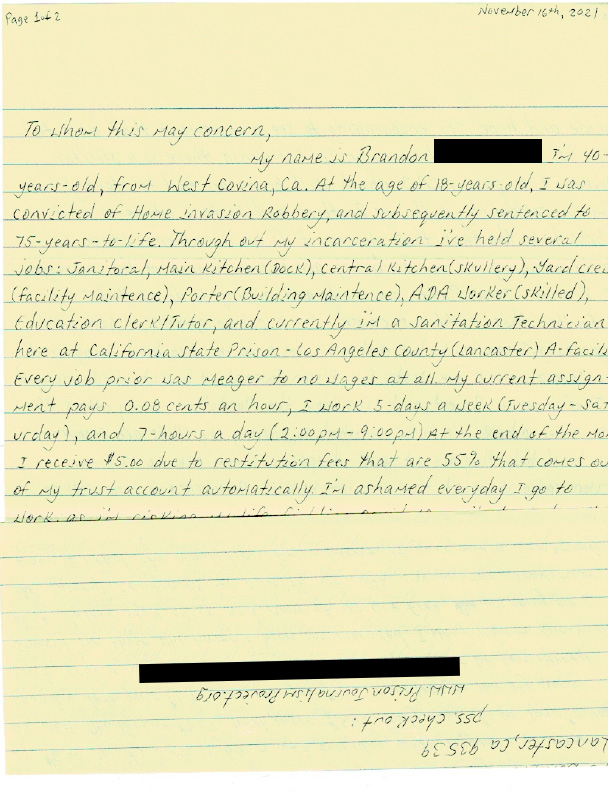 Page 1 of 2
November 16th, 2021
To whom this may concern,
My name is Brandon I'm 40-
years-old, from West Covina, Ca. At the age of 18-years-old, I was
convicted of Home invasion Robbery, and subsequently sentenced to
75-years-to-life. Through out my incarceration i've held several
jobs: Janitoral, Main Kitchen(Dock), Central Kitchen(skullery), Yard crew
(facility Maintence), Porter(Building Maintence), ADA Worker(skilled),
Education clerk/Tutor, and currently i'm a sanitation Technician
here at California State Prison-Los Angeles County(Lancaster) A-facili
Every job prior was meager to no wages at all. My current assign-
ment pays 0.08 cents an hour, I work 5-days a week (Tuesday-Sat
urday), and 7-hours a day (2:00pm-9:00pm) At the end of the mon
I receive $5.00 due to restitution fees that are 55% that comes ou
of my trust account automatically. I'm ashamed everyday I go to
work, as i'm risking my life
Lancaster, Ca 93539
pss. check out:
www.PrisonJournalismProject.org